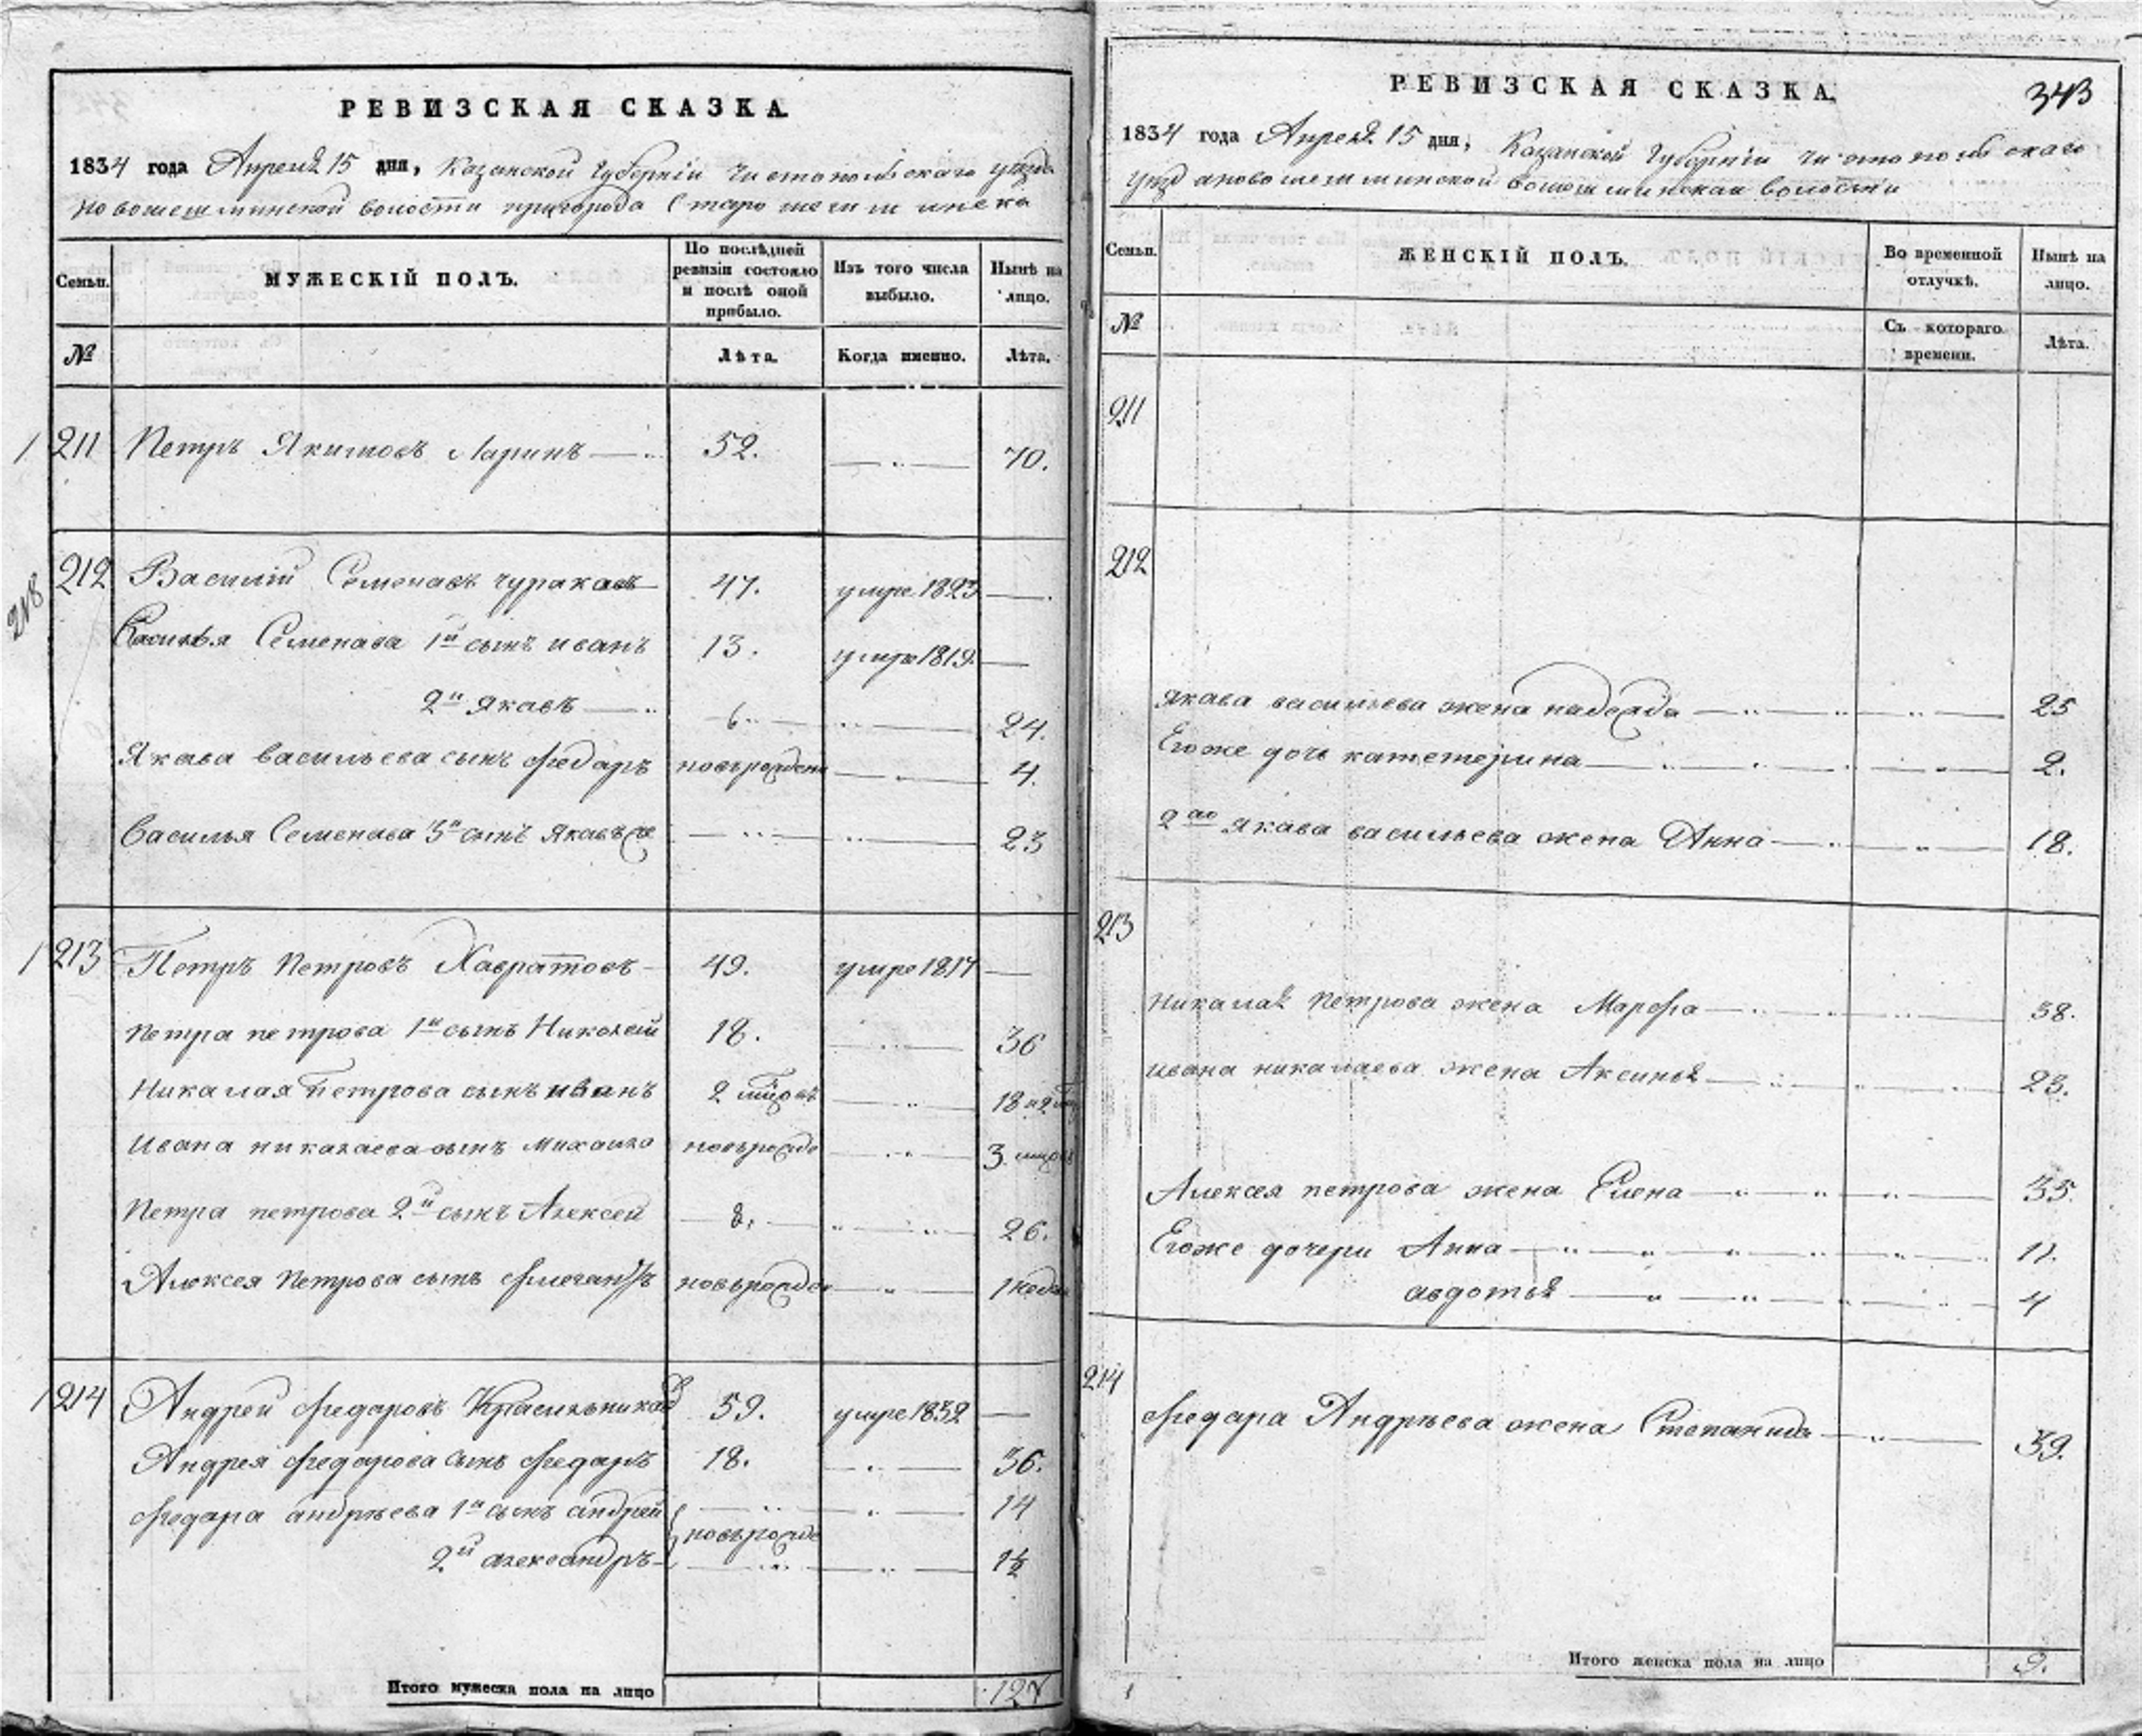 РЕВИЗСКАЯ СКАЗКА
1834 года Апреля 15 дня, Казанской Губернiи Чистопольскаго уезда
Новошешминской волости пригорода Старошешминска
Семьи.
МУЖЕСКІЙ ПОЛЪ.
По послѣдней ревизіи состояло и послѣ оной прибыло.
Изъ того числа выбыло.
Нынѣ на лицо.
№
Лѣта.
Когда именно.
Лѣта.
1 211 Петръ Якимовъ Ларинъ 52. 70.
212 Василiй Семенавъ чуракавъ 47. умре 1823
218
Василья Семенава 1й сынъ иванъ 13. умре 1819.
2й Якавъ 6 24.
Якава васильева сынъ Федаръ новърожденъ 4.
Василья Семенава 3й сынъ Якавъ же 23
1 213 Петръ Петровъ Хавратовъ 49. умре 1817
Петра петрова 1й сынъ Николай 18. 36
Никалая Петрова сынъ иванъ 2 18 и 2
Ивана никалаева сынъ Михаила новърожде 3
Петра петрова 2й сынъ Алексей 8. 26.
Алексея Петрова сынъ новърожде 1 неде
1 214 Андрей Федаровъ Красильникавъ 59. умре 1832
Андрея Федарова сынъ Федаръ 18. 36.
Федара андрѣева 1й сынъ андрей 14
новърожде
2й александръ 1½
Итого мужеска пола на лицо 12
РЕВИЗСКАЯ СКАЗКА.
343
1834 года Апреля 15 дня, Казанской Губернiи чистопольскаго
волости
Семьи.
ЖЕНСКІЙ ПОЛЪ.
Во временной отлучкѣ.
Нынѣ на лицо.
№
Съ котораго времени.
Лѣта.
211
212
Якава васильева жена надежда 25
Егоже дочь катетерина 2.
2го якава васильева жена Анна 18.
213
Никалая Петрова жена Марфа 38.
Ивана никалаева жена Аксинья 23.
Алексея петрова жена Елена 35.
Егоже дочери Анна 11.
авдотья 4
214
Федара Андрѣева жена Степанида 39.
Итого женска пола на лицо 9.